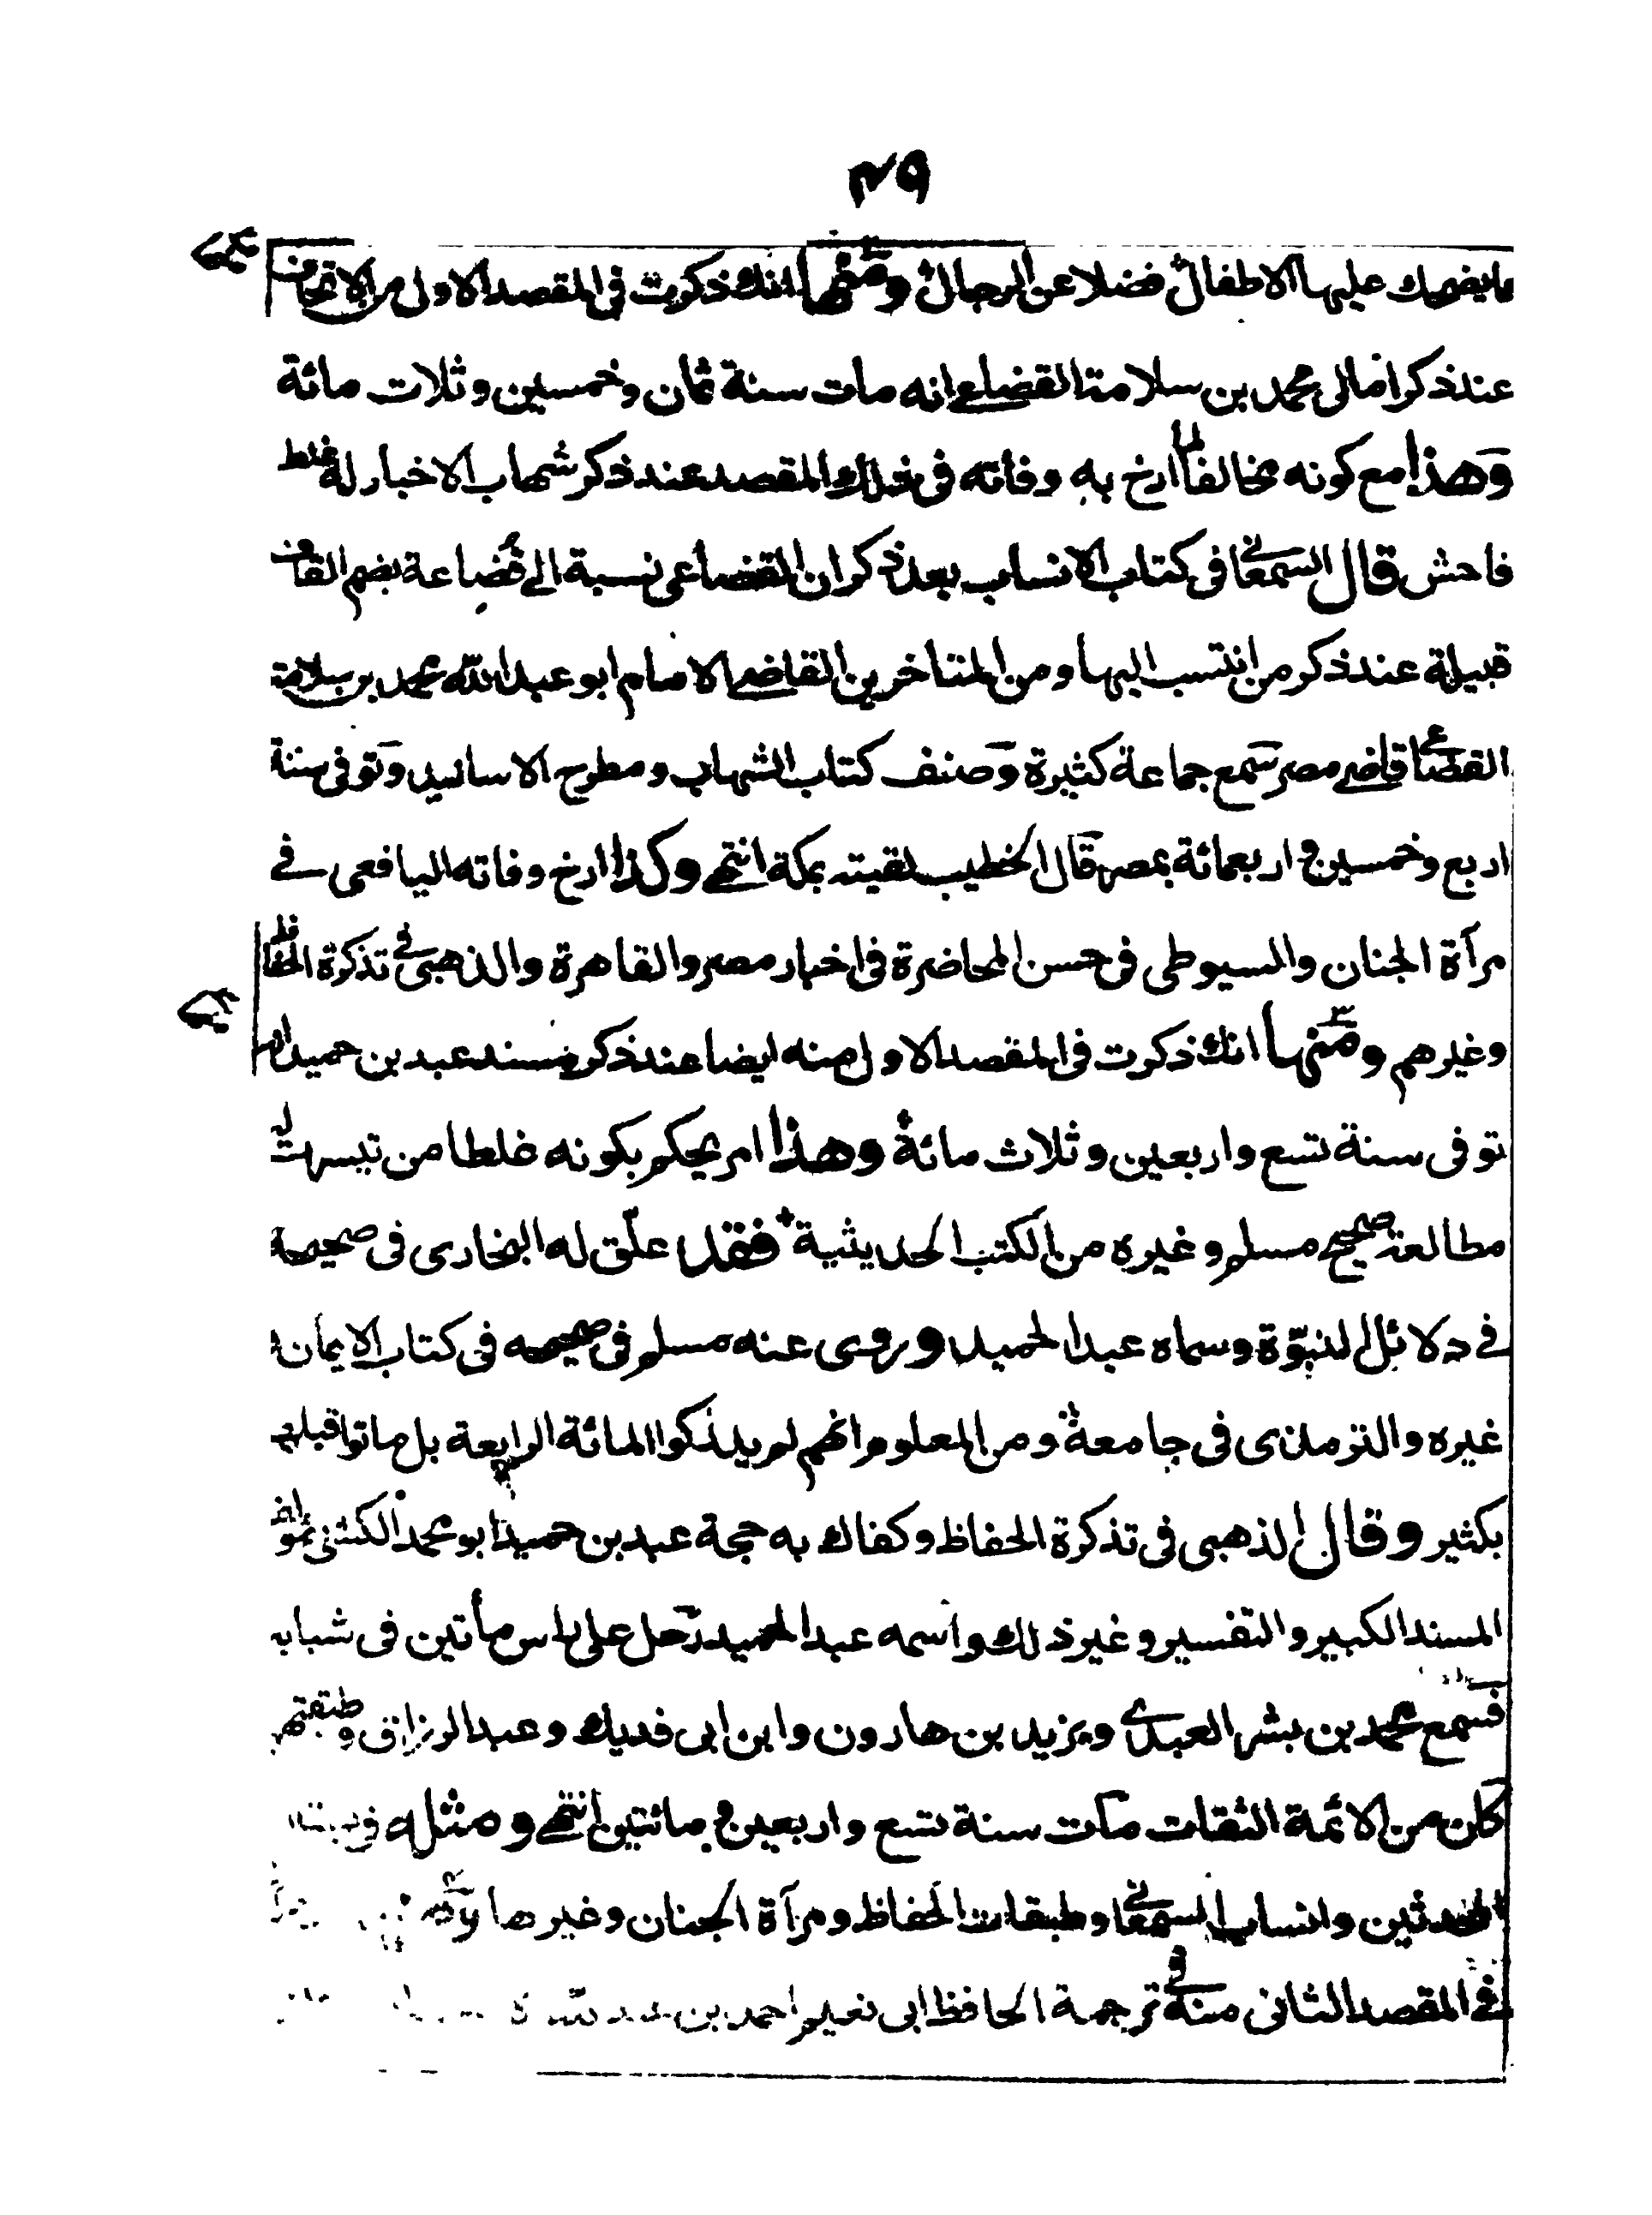 ٣٩
ما يضحك عليها الاطفال فضلا عن الرجال ومنها انك ذكرت فى المقصد الاول من الاتحاف
عند ذكر امالى محمد بن سلامة القضاعے انه مات سنة ثمان وخمسين وثلاث مائة
وهذا مع كونه مخالفا لما ارخ به وفاته فى ذلك المقصد عند ذكر شهاب الاخبار له غلط
فاحش قال السمعانے فى كتاب الانساب بعد ذكر ان القضاعى نسبة الى قُضاعة بضم القاف
قبيلة عند ذكر من انتسب اليها ومن المتاخرين القاضے الامام ابو عبد الله محمد بن سلامة
القضاعے قاضے مصر سمع جماعة كثيرة وصنف كتاب الشهاب ومطرح الاسانيد وتوفى سنة
اربع وخمسين واربعمائة بمصر قال الخطيب لقيته بمكة انتهے وكذا ارخ وفاته اليافعى فے
مرآة الجنان والسيوطى فى حسن المحاضرة فى اخبار مصر والقاهرة والذهبى فے تذكرة الحفاظ
وغيرهم ومنها انك ذكرت فى المقصد الاول منه ايضا عند ذكر مسند عبد بن حميد انه
توفى سنة تسع واربعين وثلاث مائة وهذا امر يحكم بكونه غلطا من تيسرت له
مطالعة صحيح مسلم وغيره من الكتب الحديثية فقد علّق له البخارى فى صحيحه
فے دلائل النبوّة وسماه عبد الحميد وروى عنه مسلم فى صحيحه فى كتاب الايمان و
غيره والترمذى فى جامعه ومن المعلوم انهم لم يدركوا المائة الرابعة بل ماتوا قبلها
بكثير وقال الذهبى فى تذكرة الحفاظ وكفاك به حجة عبد بن حميد ابو محمد الكشى مؤلف
المسند الكبير والتفسير وغير ذلك واسمه عبد الحميد رحل على راس مأتين فى شبابه
فسمع محمد بن بشر العبدى ويزيد بن هارون وابن ابى فديك وعبد الرزاق وطبقتهم
كان من الائمة الثقات مات سنة تسع واربعين ومائتين انتهے ومثله فى
المحدثين وانساب السمعانے وطبقات الحفاظ ومرآة الجنان وغيرها
فے المقصد الثانى منه فى ترجمة الحافظ ابى نعيم احمد بن عبد الله